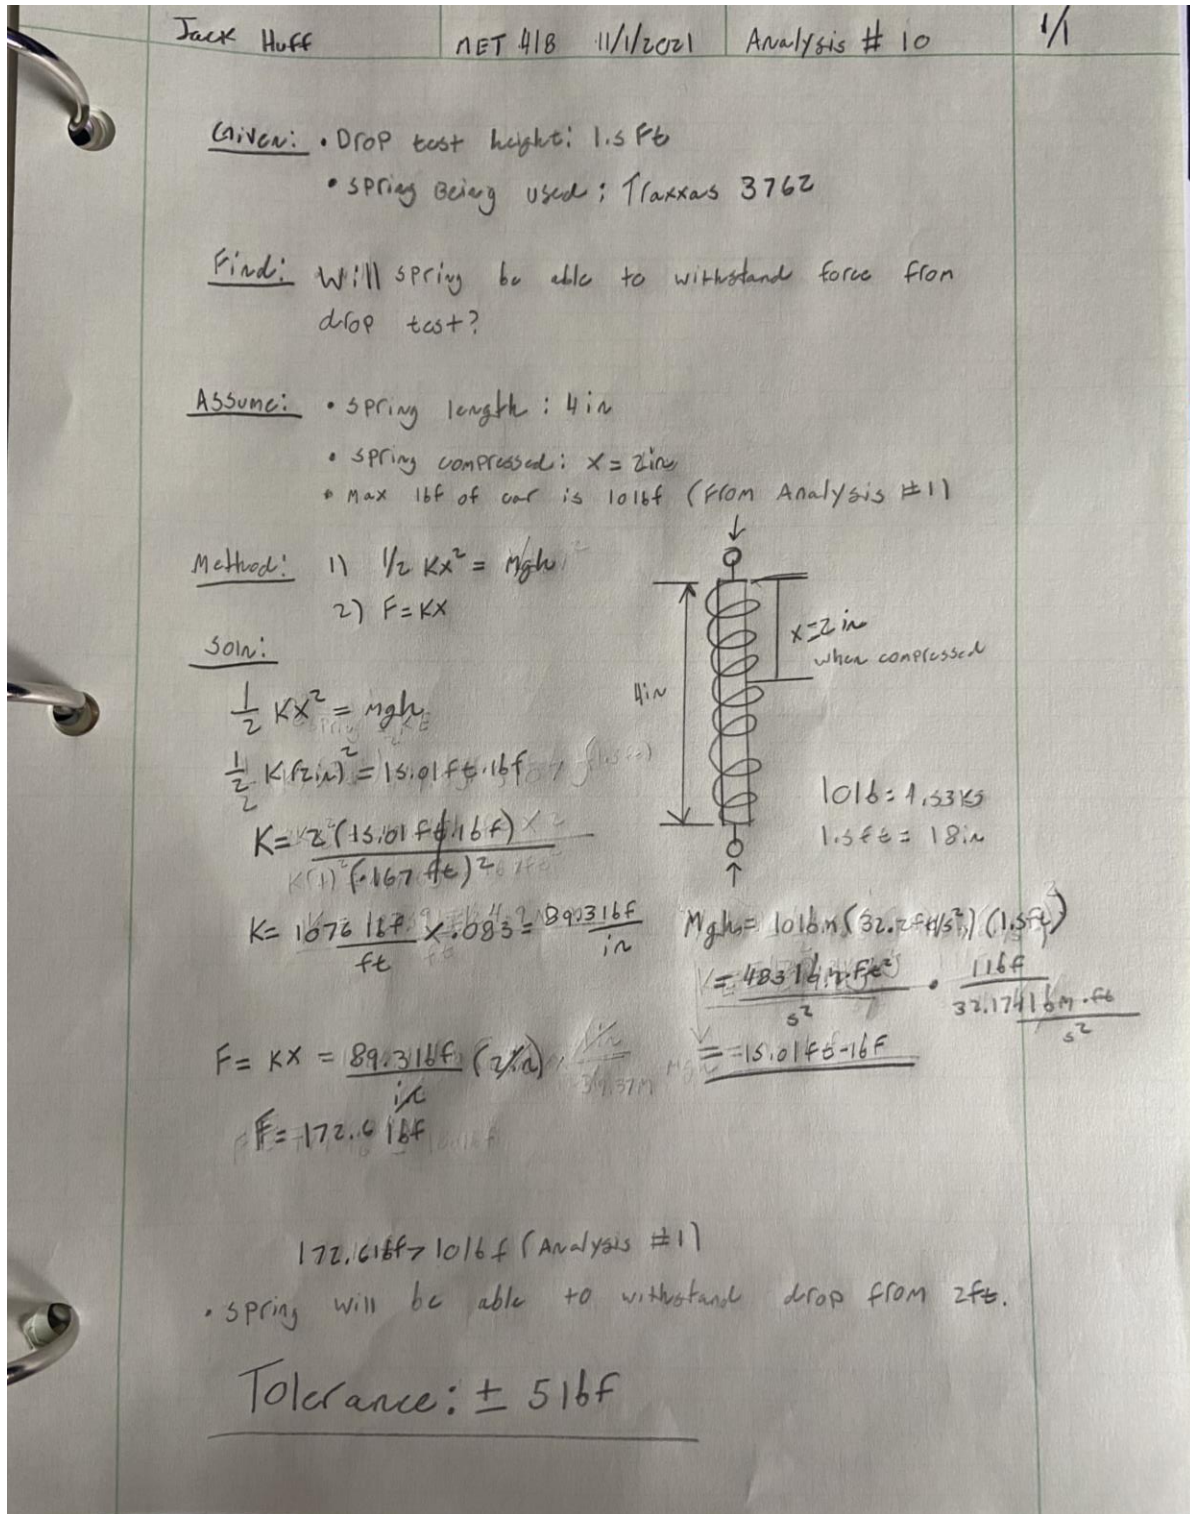 Jack Huff MET 418 11/1/2021 Analysis # 10 1/1
Given: • Drop test height: 1.5 Ft
• Spring Being used: Traxxas 3762
Find: Will spring be able to withstand force from
drop test?
Assume: • Spring length: 4in
• Spring compressed: x = 2in
• Max lbf of car is 10 lbf (From Analysis #1)
Method: 1) 1/2 Kx² = Mgh
2) F = Kx
Soln:
1/2 Kx² = Mgh
1/2 K(2in)² = 15.01 ft·lbf
K = 2(15.01 ft·lbf) / (.167 ft)²
K = 1076 lbf/ft x .083 = 89.3 lbf/in
F = Kx = 89.3 lbf/in (2in)
F = 172.6 lbf
4in
x = 2in
when compressed
10 lb = 4.53 KG
1.5 ft = 18in
Mgh = 10 lbm (32.2 ft/s²) (1.5 ft)
= 483 lbm·ft²/s² • 1 lbf / 32.174 lbm·ft/s²
= 15.01 ft-lbf
172.6 lbf > 10 lbf (Analysis #1)
• Spring will be able to withstand drop from 2ft.
Tolerance: ± 5 lbf